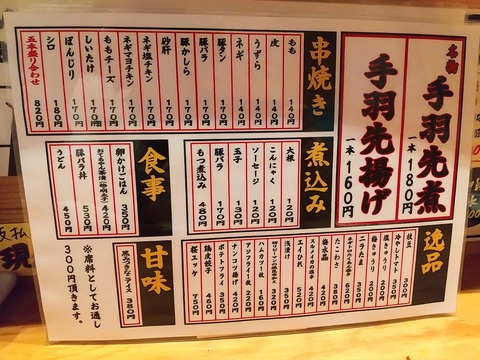 名物
手羽先煮
一本 180円
手羽先揚げ
一本 160円
串焼き
もも 140円
皮 140円
うずら 140円
ネギ 140円
豚タン 170円
豚バラ 170円
豚かしら 170円
砂肝 170円
ネギ塩チキン 170円
ネギマヨチキン 170円
ももチーズ 170円
しいたけ 170円
ぼんじり 170円
シロ 180円
五本盛り合わせ 820円
煮込み
大根 120円
こんにゃく 120円
ソーセージ 120円
玉子 130円
豚バラ 170円
もつ煮込み 480円
食事
卵かけごはん 350円
420円
豚バラ丼 530円
うどん 450円
逸品
枝豆 300円
冷やしトマト 350円
塩きゅうり 200円
梅きゅうり 200円
ニラたま
たこわさ 380円
梅水晶 420円
スルメイカの塩辛
エイひれ 520円
浅漬け 350円
320円
ハムカツ1枚 160円
アジフライ1枚 220円
ナンコツ揚げ 420円
ポテトフライ 350円
鶏皮餃子 460円
桜ユッケ 780円
甘味
380円
※席料としてお通し
300円頂きます。